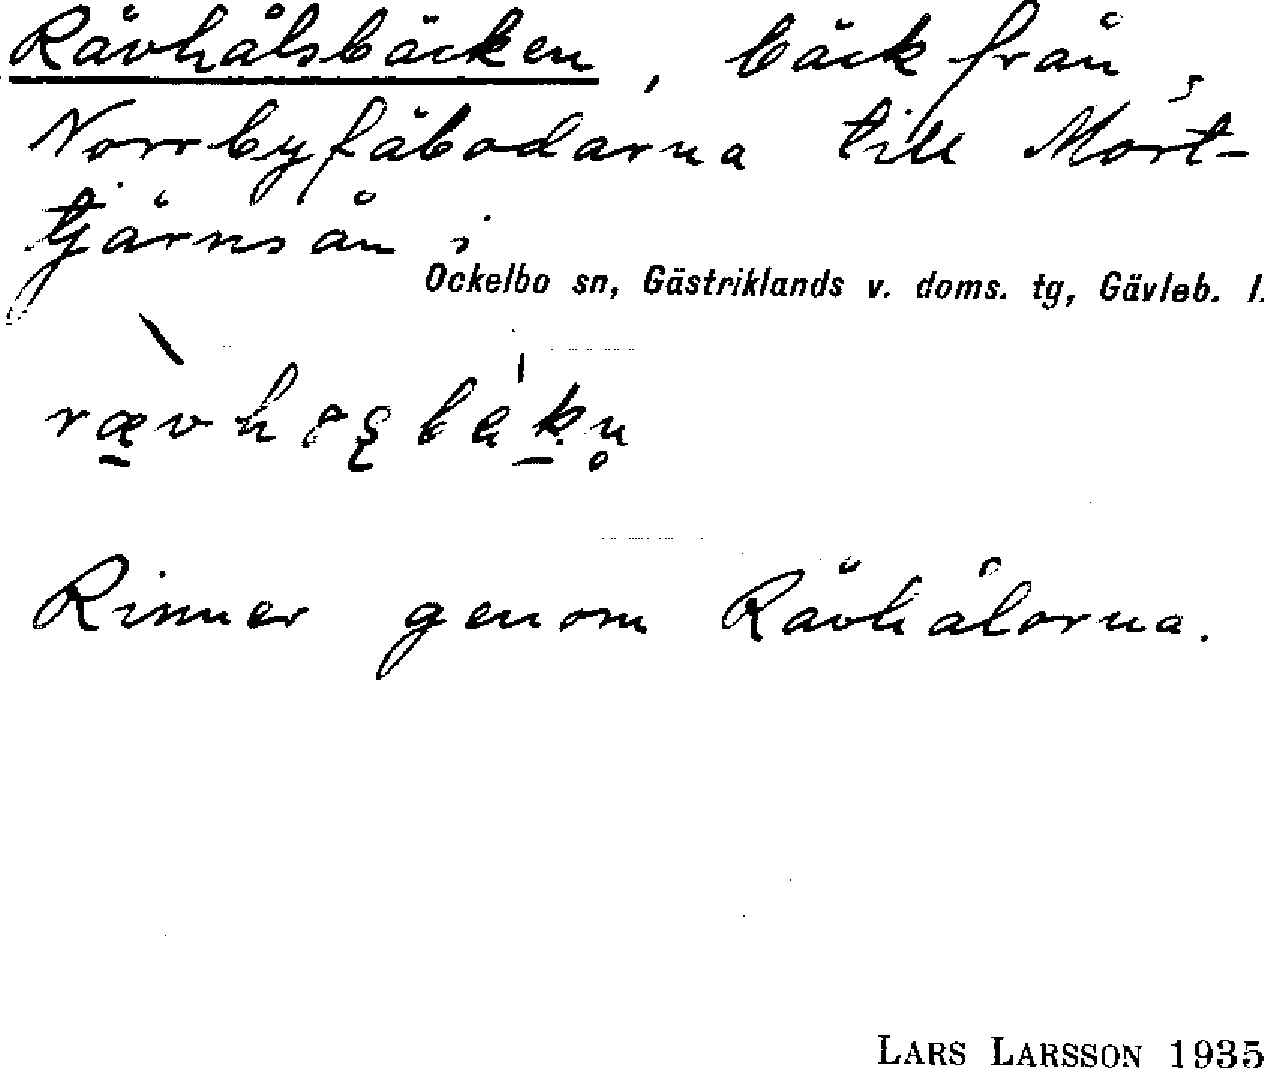 Rävhålsbäcken, bäck från
Norrbyfäbodarna till Mört-
tjärnsån i
Ockelbo sn, Gästriklands v. doms. tg, Gävleb. l.
Rinner genom Rävhålorna.
LARS LARSSON 1935